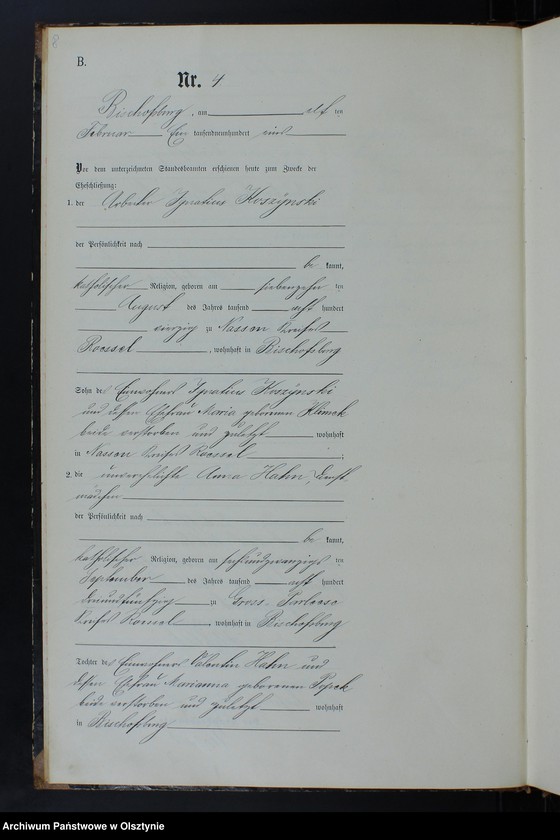 8
B.
Nr. 4
Bischofsburg, am elf ten
Februar Ein tausendneunhundert eins
Vor dem unterzeichneten Standesbeamten erschienen heute zum Zwecke der
Eheschließung:
1. der Arbeiter Ignatius Koszynski
der Persönlichkeit nach
be kannt,
katholischer Religion, geboren am siebenzehn ten
August des Jahres tausend acht hundert
vierzig zu Nassen Kreises
Roessel, wohnhaft in Bischofsburg
Sohn des Einwohners Ignatius Koszynski
und dessen Ehefrau Maria geborenen Klimek
beide verstorben und zuletzt wohnhaft
in Nassen Kreises Roessel;
2. die unverehelichte Anna Hahn, Dienst
mädchen
der Persönlichkeit nach
be kannt,
katholischer Religion, geboren am sechsundzwanzigs ten
September des Jahres tausend acht hundert
zu Gross
Kreises Roessel, wohnhaft in Bischofsburg
Tochter des Einwohners Valentin Hahn und
dessen Ehefrau Marianna geborenen
beide verstorben und zuletzt wohnhaft
in Bischofsburg
Archiwum Państwowe w Olsztynie